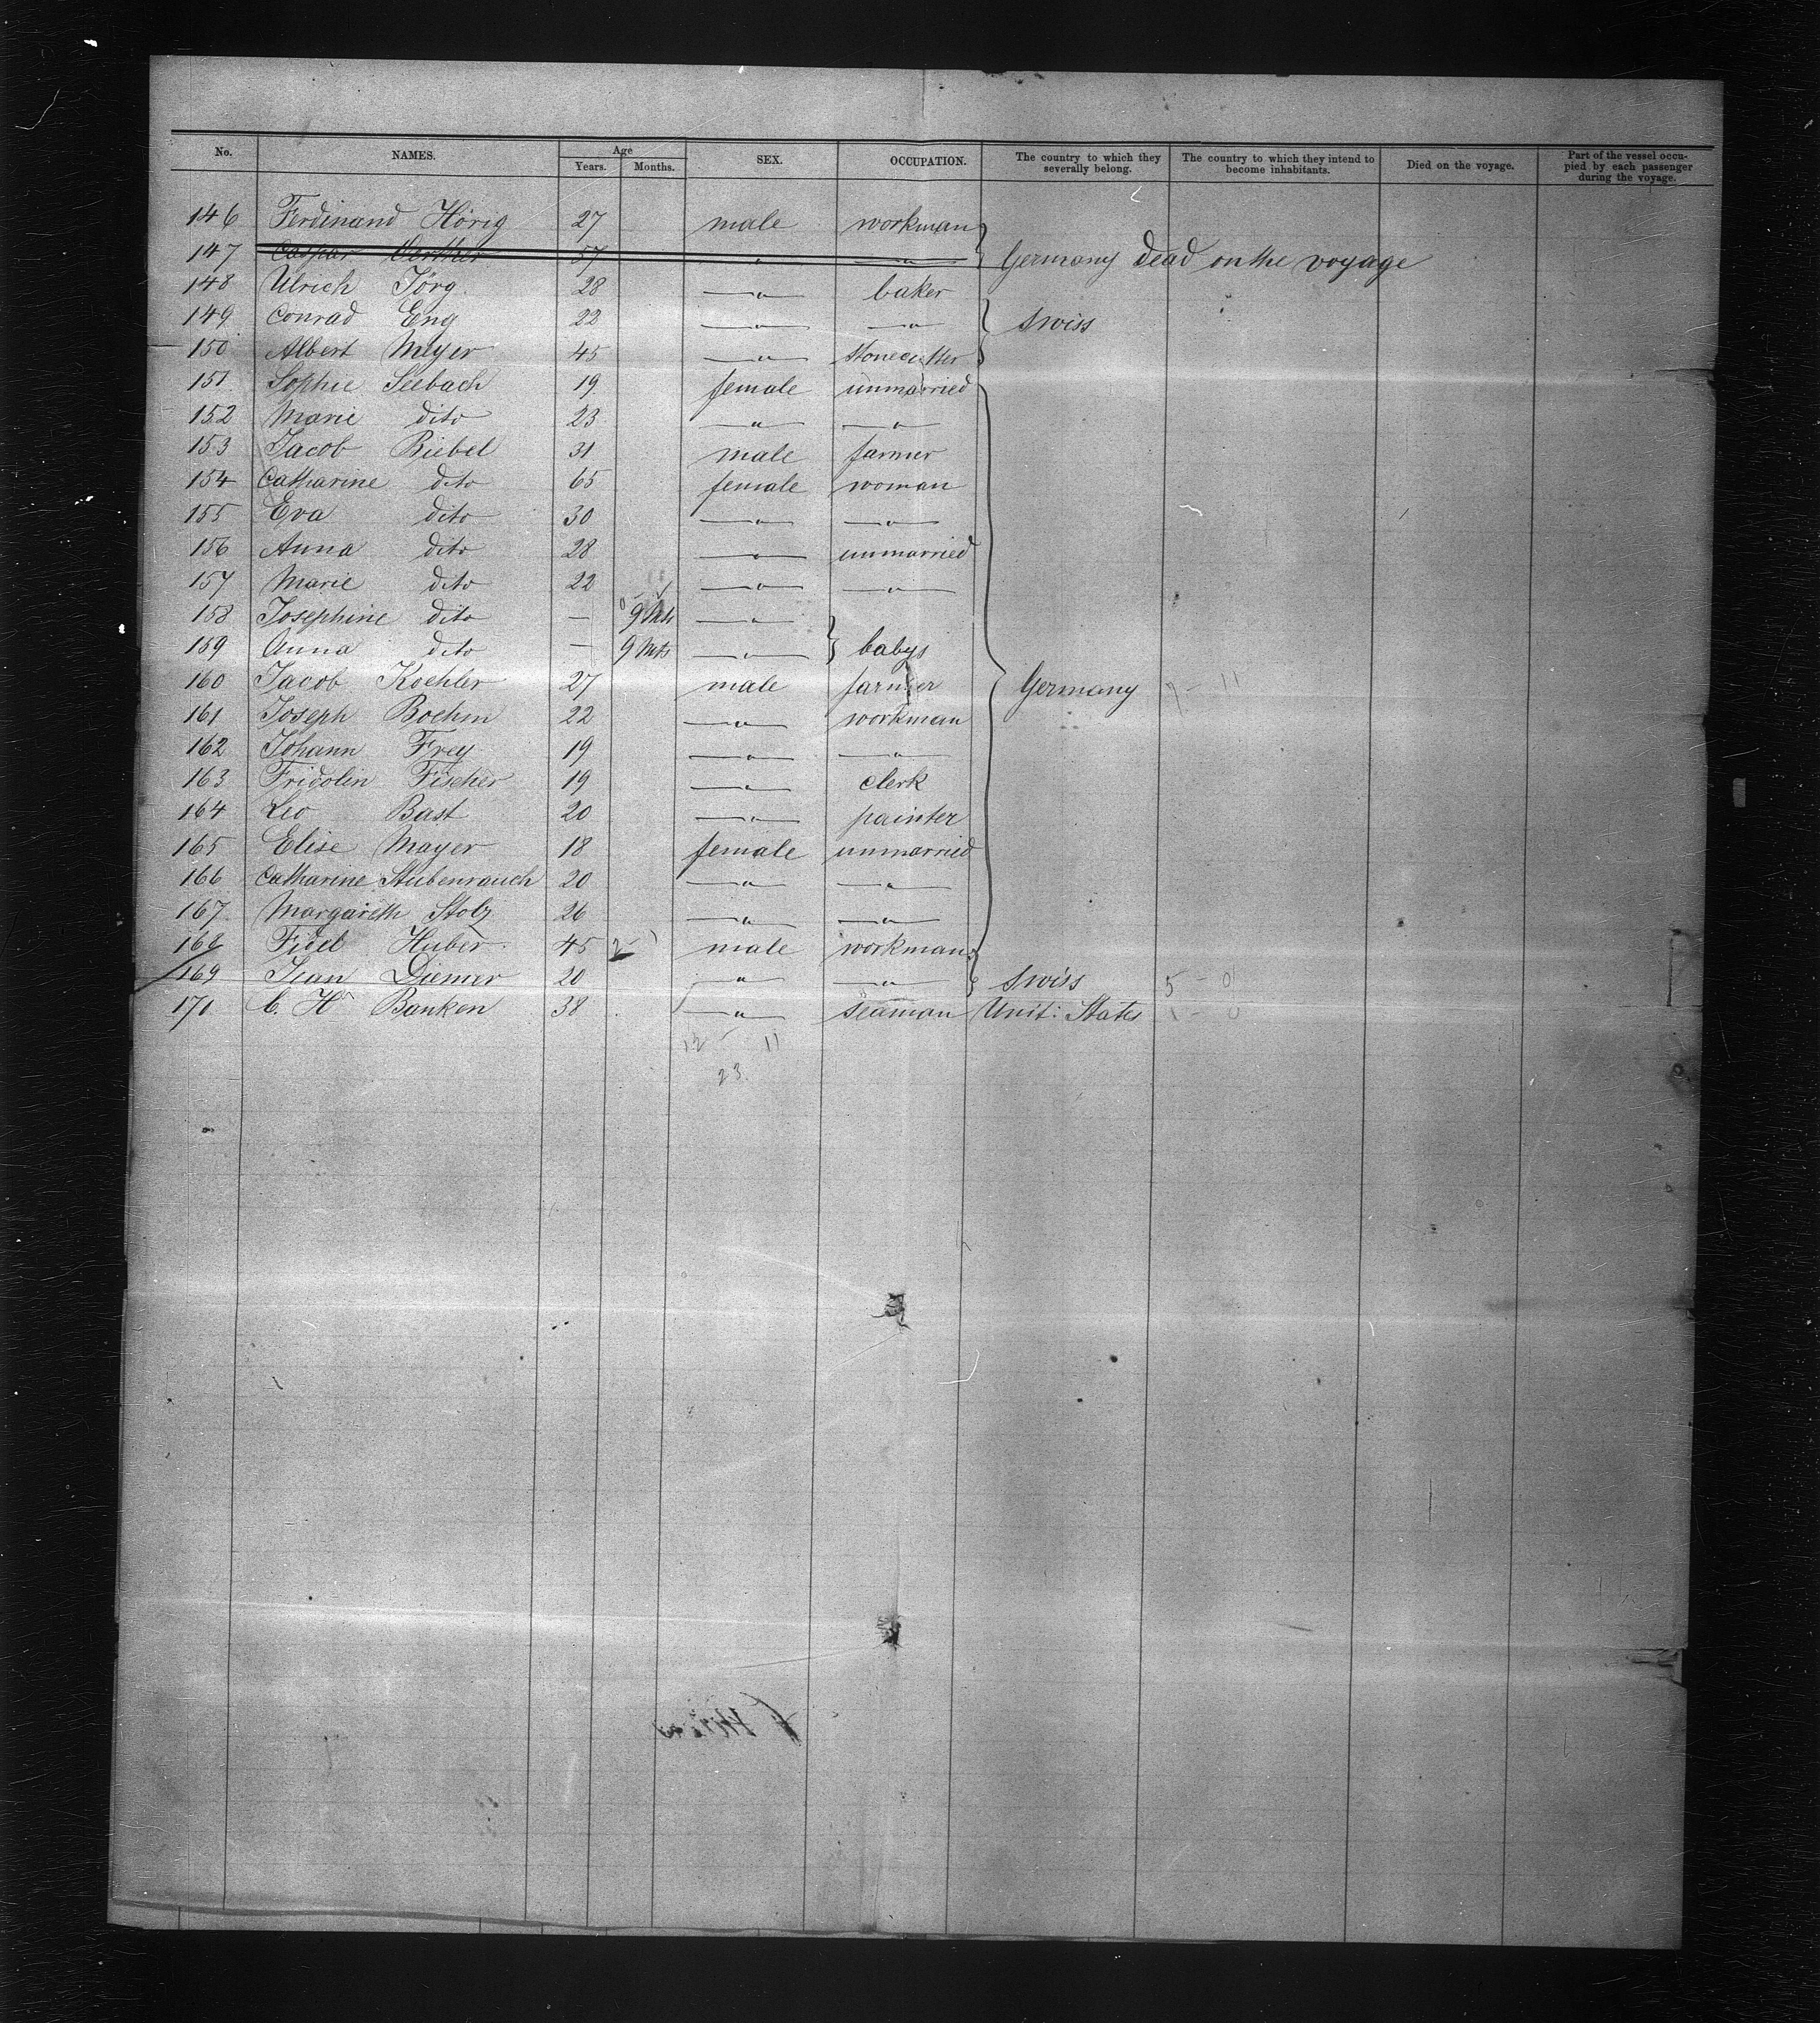 No. NAMES. Age Years. Months. SEX. OCCUPATION. The country to which they severally belong. The country to which they intend to become inhabitants. Died on the voyage. Part of the vessel occupied by each passenger during the voyage.
146 Ferdinand Hörig 27 male workman
147 Caspar 57 " " Germany Dead on the voyage
148 Ulrich Jörg 28 " baker
149 Conrad Eng 22 " " Swiss
150 Albert Meyer 45 " stonecutter
151 Sophie Seebach 19 female unmarried
152 Marie dito 23 " "
153 Jacob Biebel 31 male farmer
154 Catharine dito 65 female woman
155 Eva dito 30 " "
156 Anna dito 28 " unmarried
157 Marie dito 22 " "
158 Josephine dito — 9 Mts "
159 Anna dito — 9 Mts " babys
160 Jacob Koehler 27 male farmer Germany 7 - 11
161 Joseph Boehm 22 " workman
162 Johann Frey 19 " "
163 Fridolin Fischer 19 " clerk
164 Leo Bast 20 " painter
165 Elise Mayer 18 female unmarried
166 Catharine Stubenrauch 20 " "
167 Margareth Stolz 26 " "
168 Fidel Huber 45 male workman
169 Jean Diemer 20 " " Swiss 5 - 0
170 C. H. Banken 38 " seaman Unit: States 1 - 0
12 - 11
23